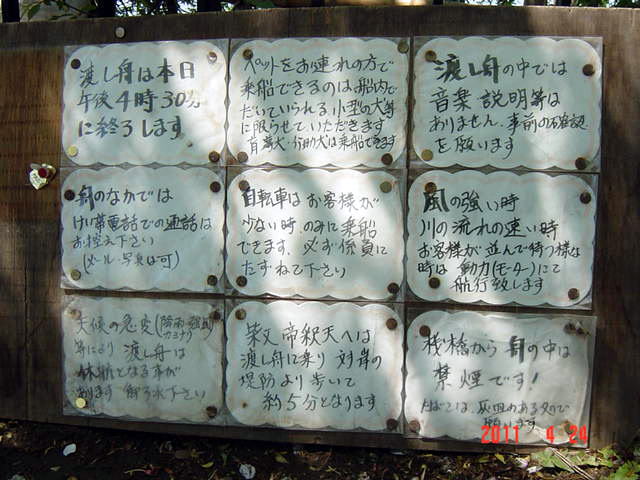 渡し舟は本日
午後4時30分
に終ろします
ペットをお連れの方で
乗船できるのは船内で
だいていられる小型の犬等
に限らせていただきます
盲導犬・介助犬は乗船できます
渡し舟の中では
音楽 説明等は
ありません、事前の確認
を願います
舟のなかでは
けい帯電話での通話は
お控え下さい
(メール・写真は可)
自転車はお客様が
少ない時のみに乗船
できます、必ず係員に
たずねて下さい
風の強い時
川の流れの速い時
お客様が並んで待つ様な
時は 動力(モーター)にて
航行致します
天候の急変(降雨・強風
カミナリ
等により 渡し舟は
休航となる事が
あります 御了承下さい
柴又 帝釈天へは
渡し舟に乗り 対岸の
堤防より歩いて
約5分となります
桟橋から舟の中は
禁煙です!
たばこは、灰皿のある所で
願います
2011 4 24